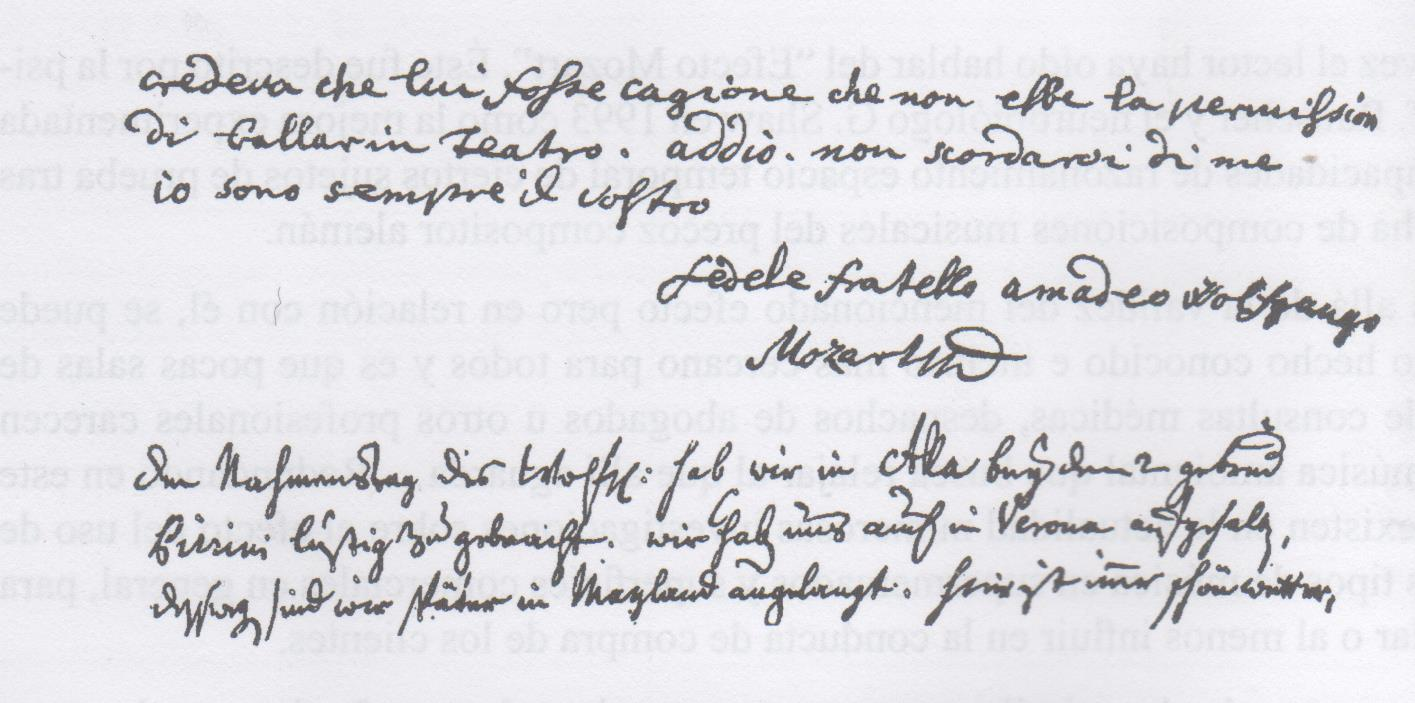 credeva che lui fosse cagione che non ebbe la permission
di Ballar in teatro. addio. non scordarvi di me.
io sono sempre il vostro
fedele fratello amadeo wolfgango
Mozart
den Nahmenstag hab wir in Alla bey den 2 gebrüd
Piccini lustig zugebracht. wir hab uns auch in Verona aufghalt,
sind wir später in Mayland angelangt. ist immer schön wetter,